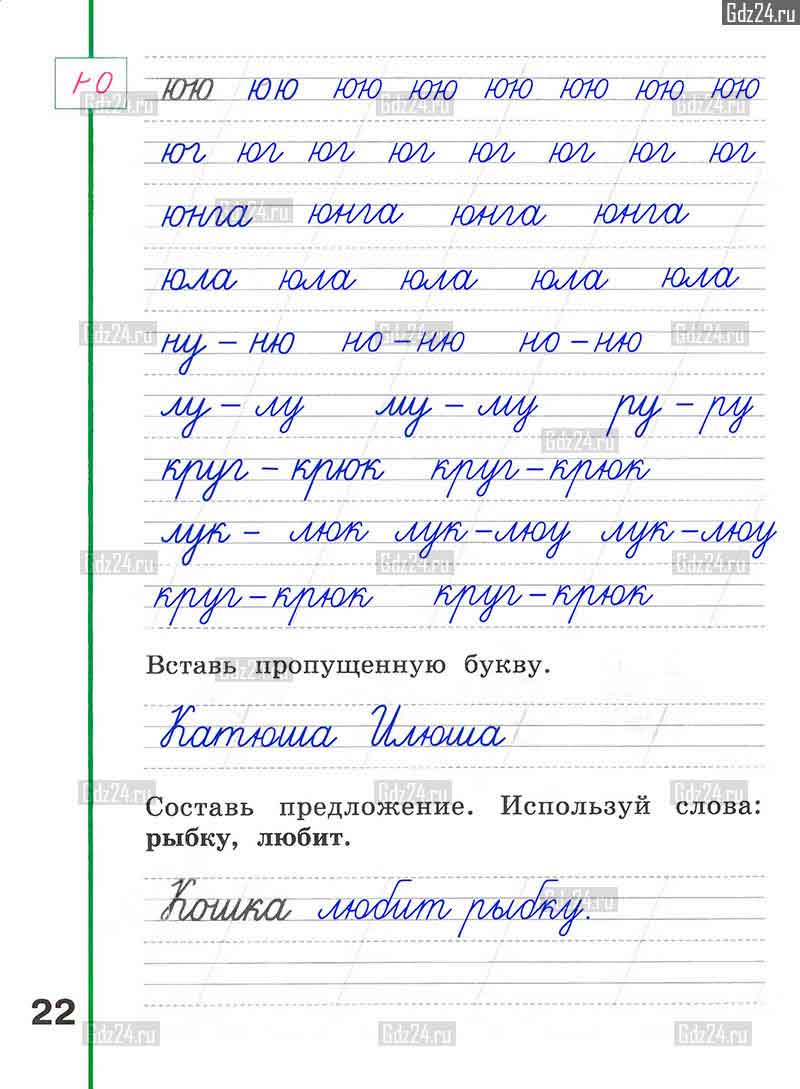 Gdz24.ru
ю
юю юю юю юю юю юю юю юю
юг юг юг юг юг юг юг юг
юнга юнга юнга юнга
юла юла юла юла юла
ну – ню но – ню но – ню
лу – лу му – му ру – ру
круг – крюк круг – крюк
лук – люк лук – люу лук – люу
круг – крюк круг – крюк
Вставь пропущенную букву.
Катюша Илюша
Составь предложение. Используй слова:
рыбку, любит.
Кошка любит рыбку.
22
Gdz24.ru Gdz24.ru Gdz24.ru